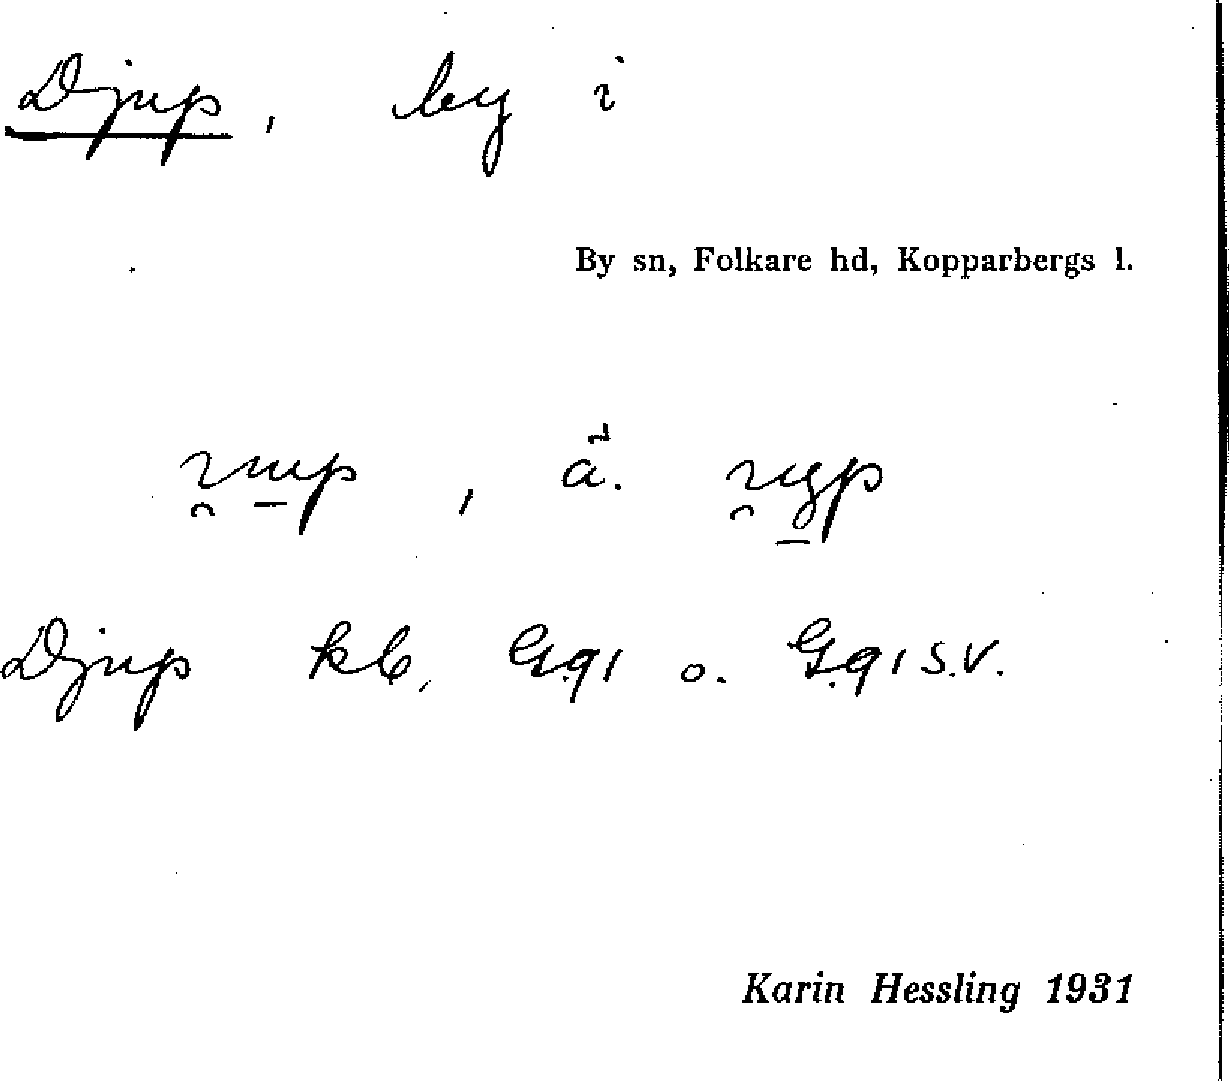 Djup, by i
By sn, Folkare hd, Kopparbergs l.
Djup kb, G.q1 o. G.q1 S.V.
Karin Hessling 1931